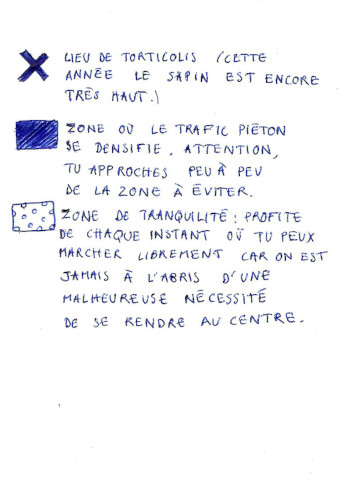 LIEU DE TORTICOLIS (CETTE
ANNÉE LE SAPIN EST ENCORE
TRÈS HAUT.)
ZONE OÙ LE TRAFIC PIÉTON
SE DENSIFIE. ATTENTION,
TU APPROCHES PEU À PEU
DE LA ZONE À ÉVITER.
ZONE DE TRANQUILITÉ : PROFITE
DE CHAQUE INSTANT OÙ TU PEUX
MARCHER LIBREMENT CAR ON EST
JAMAIS À L'ABRIS D'UNE
MALHEUREUSE NÉCESSITÉ
DE SE RENDRE AU CENTRE.